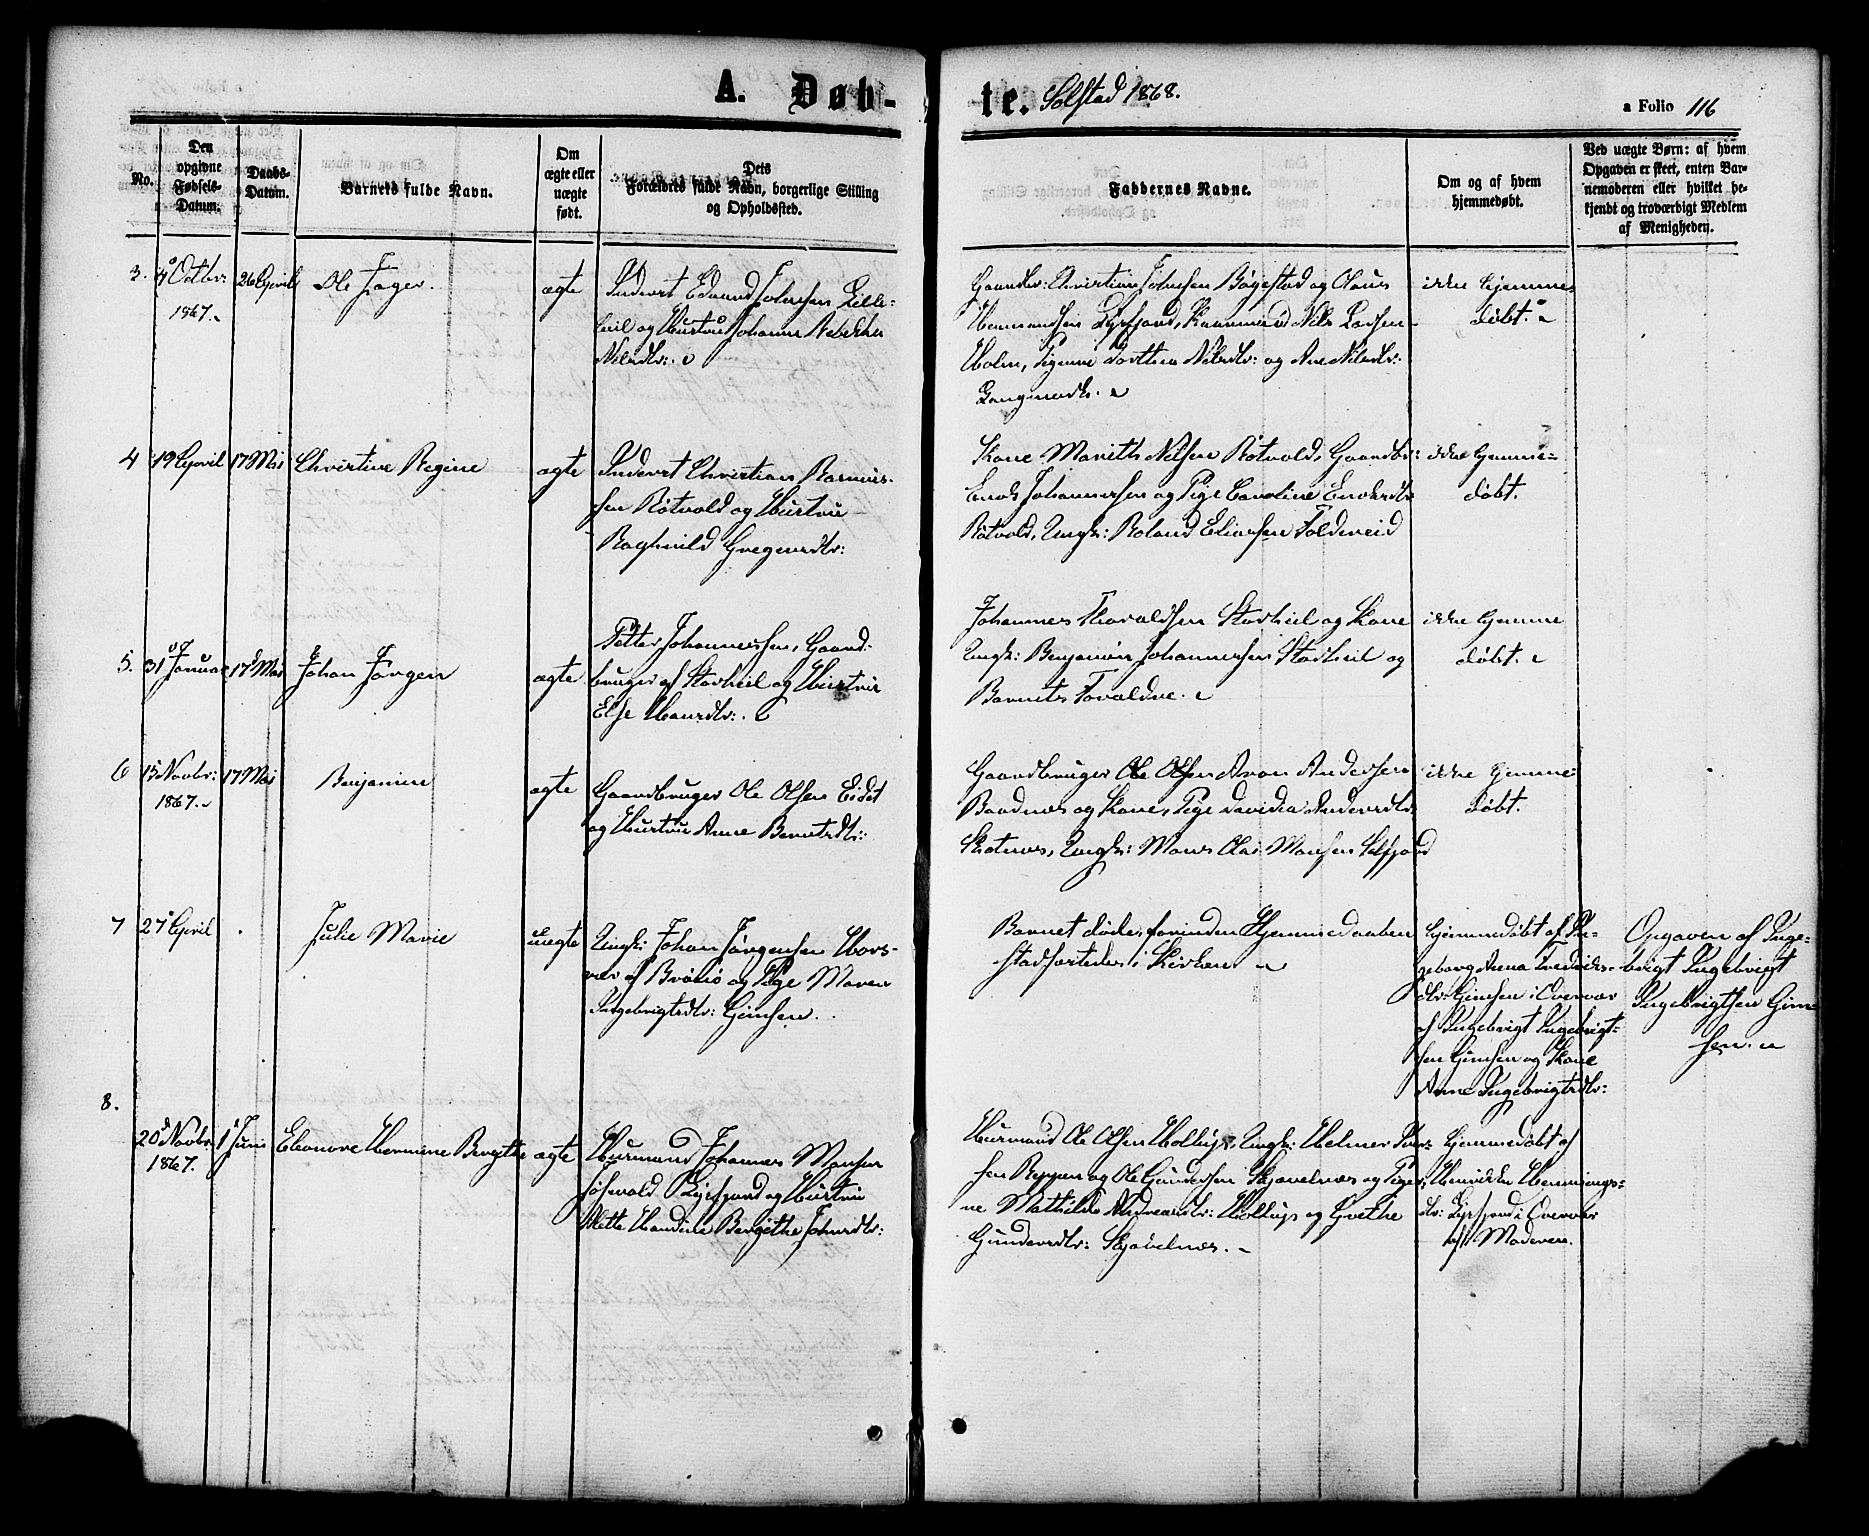 A. Døb-
te. Solstad 1868.
a Folio 116
No.
Den
opgivne
Fødsels-
Datum.
Daabs-
Datum.
Barnets fulde Navn.
Om
ægte eller
uægte
født.
Dets
Forældres fulde Navn, borgerlige Stilling
og Opholdssted.
Faddernes Navne.
Om og af hvem
hjemmedøbt.
Ved uægte Børn: af hvem
Opgaven er skeet, enten Bar-
nemoderen eller hvilket be-
kjendt og troværdigt Medlem
af Menigheden.
3.
4 Octbr:
1867.
26 April
Ole Jager.
ægte
Inderst Edvard Johnsen Lille-
heil og Hustru Johanna Rebekka
Nilsdtr:.
Gaardbr: Christian Johnsen Bøgestad og Claus
Hermandsen Kjelfjord, Kaarmand Nils Larsen
Holm, Pigerne Dorthea Nilsdtr: og Ane Nilsdtr:
ikke hjemme-
døbt.
4
19 April
17 Mai
Christine Regine
ægte
Inderst Christian Rasmus-
sen Røtvold og Hustru
Raghnild Gregersdtr:
Kone Marith Nilsen Røtvold, Gaardbr:
Enok Johannessen og Pige Caroline Enoksdtr
Røtvold, Ungk: Roland Eliassen Foldereid
ikke hjemme-
døbt.
5.
31 Januar
17 Mai
Johan Jørgen
ægte
Petter Johannessen, Gaard-
bruger af Storheil og Hustru
Else Hansdtr:.
Johannes Thoraldsen Storheil og Kone
Ungk: Benjamin Johannessen Storheil og
Barnets Forældre.
ikke hjemme
døbt.
6
15 Novbr:
1867.
17 Mai
Benjamine
ægte
Gaardbruger Ole Olsen Eidet
og Hustru Anne Berntsdtr:
Gaardbruger Ole Olsen Aron Andersen
Baadnes og Kone, Pige Davidia Andersdtr
Skotnes, Ungk: Mons Olai Monsen Kjelfjord
ikke hjemme-
døbt.
7
27 April
Julie Marie
uægte
Ungk: Johan Jørgensen Hors-
nes af Brønø og Pige Maren
Ingebrigtsdtr: Gimsen.
Barnet døde, forinden Hjemmedaaben
stadfæstedes i Kirken
hjemmedøbt af In-
geborg Anna Fredriks-
dtr: Gimsen i Overvær
af Ingebrigt Ingebrigt-
sen Gimsen og Kone
Anne Ingebrigtsdtr:
Opgaven af Inge-
brigt Ingebrigt
Ingebrigtsen Gim-
sen.
8.
20 Novbr
1867.
1 Juni
Eleonore Hermine Bergitte
ægte
Huusmand Johannes Monsen
Kjelfjord og Hustru
Mette Handine Bergithe Johnsdtr:
Huusmand Ole Olsen Hollup, Ungk: Helmer Iver-
sen Reppen og Ole Gundersen Skjævelnes og Piger-
ne Mathilde Andreasdtr: Hollup og Grethe
Gundersdtr: Skjævelnes.
hjemmedøbt af
Henrikke Hennings-
dtr: Kjelfjord i Overvær
af Moderen.